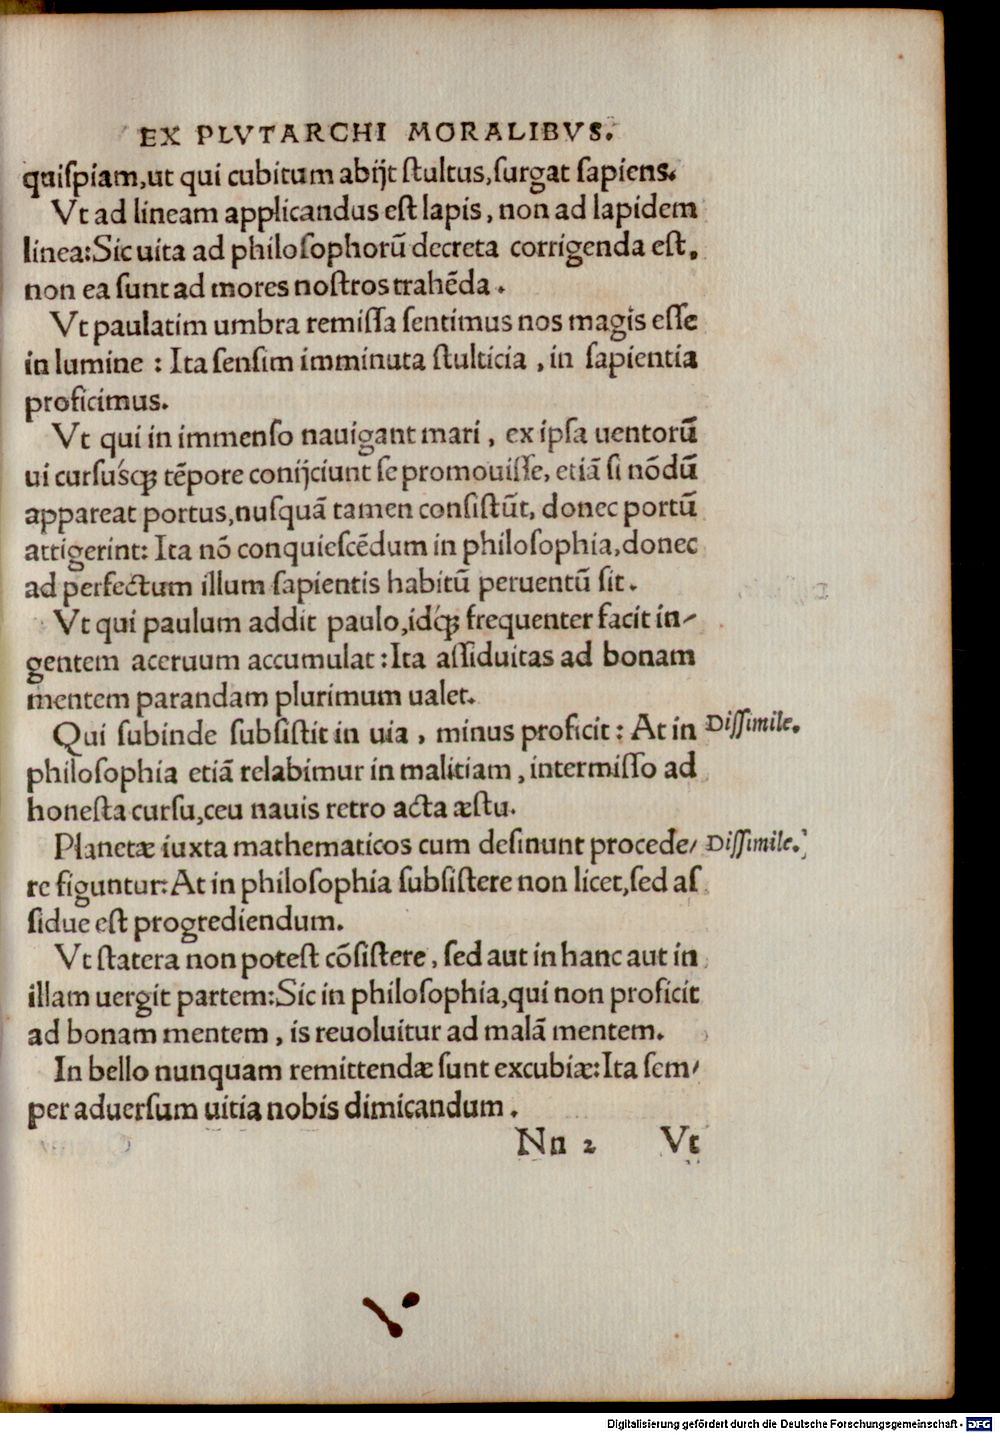 EX PLVTARCHI MORALIBVS.
quiſpiam,ut qui cubitum abijt ſtultus,ſurgat ſapiens.
Vt ad lineam applicandus eſt lapis, non ad lapidem
linea:Sic uita ad philoſophorũ decreta corrigenda eſt,
non ea ſunt ad mores noſtros trahẽda.
Vt paulatim umbra remiſſa ſentimus nos magis eſſe
in lumine : Ita ſenſim imminuta ſtulticia , in ſapientia
proficimus.
Vt qui in immenſo nauigant mari , ex ipſa uentorũ
ui curſuśq̃ tẽpore conijciunt ſe promouiſſe, etiã ſi nõdũ
appareat portus,nuſquã tamen conſiſtũt, donec portũ
attigerint: Ita nõ conquieſcẽdum in philoſophia,donec
ad perfectum illum ſapientis habitũ peruentũ ſit.
Vt qui paulum addit paulo,id́q̃ frequenter facit in-
gentem aceruum accumulat:Ita aſſiduitas ad bonam
mentem parandam plurimum ualet.
Qui ſubinde ſubſiſtit in uia , minus proficit : At in Diſſimile.
philoſophia etiã relabimur in malitiam , intermiſſo ad
honeſta curſu,ceu nauis retro acta æſtu.
Planetæ iuxta mathematicos cum deſinunt procede/ Diſſimile.
re figuntur:At in philoſophia ſubſiſtere non licet,ſed aſ
ſidue eſt progrediendum.
Vt ſtatera non poteſt cõſiſtere, ſed aut in hanc aut in
illam uergit partem:Sic in philoſophia,qui non proficit
ad bonam mentem , is reuoluitur ad malã mentem.
In bello nunquam remittendæ ſunt excubiæ:Ita ſem/
per aduerſum uitia nobis dimicandum .
Nn 2 Vt
Digitalisierung gefördert durch die Deutsche Forschungsgemeinschaft - DFG